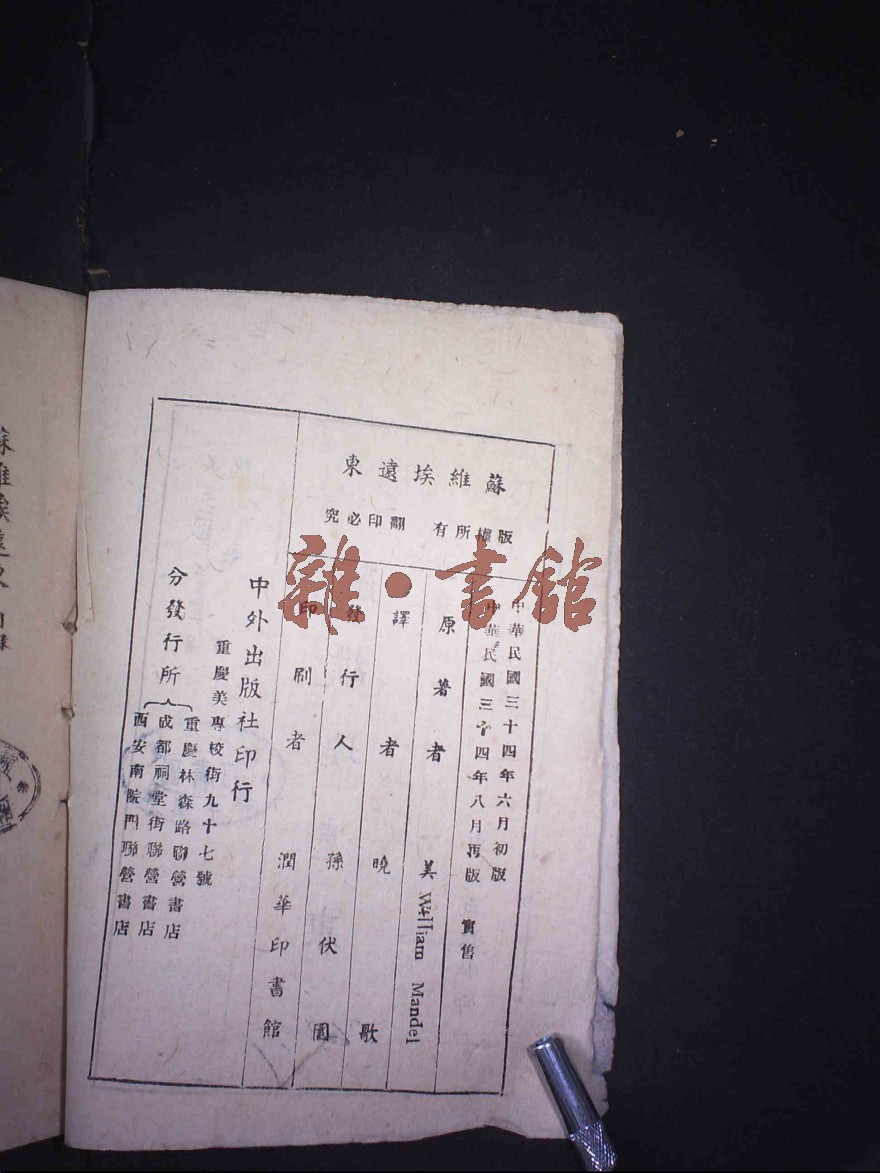 蘇維埃遠東
版權所有 翻印必究
中華民國三十四年六月初版
中華民國三十四年八月再版 實售
原著者 美 William Mandel
譯者 曉歌
發行人 孫伏園
印刷者 潤華印書館
中外出版社印行
重慶美專校街九十七號
分發行所
重慶林森路聯營書店
成都祠堂街聯營書店
西安南院門聯營書店
雜·書館
蘇維埃遠東 目錄